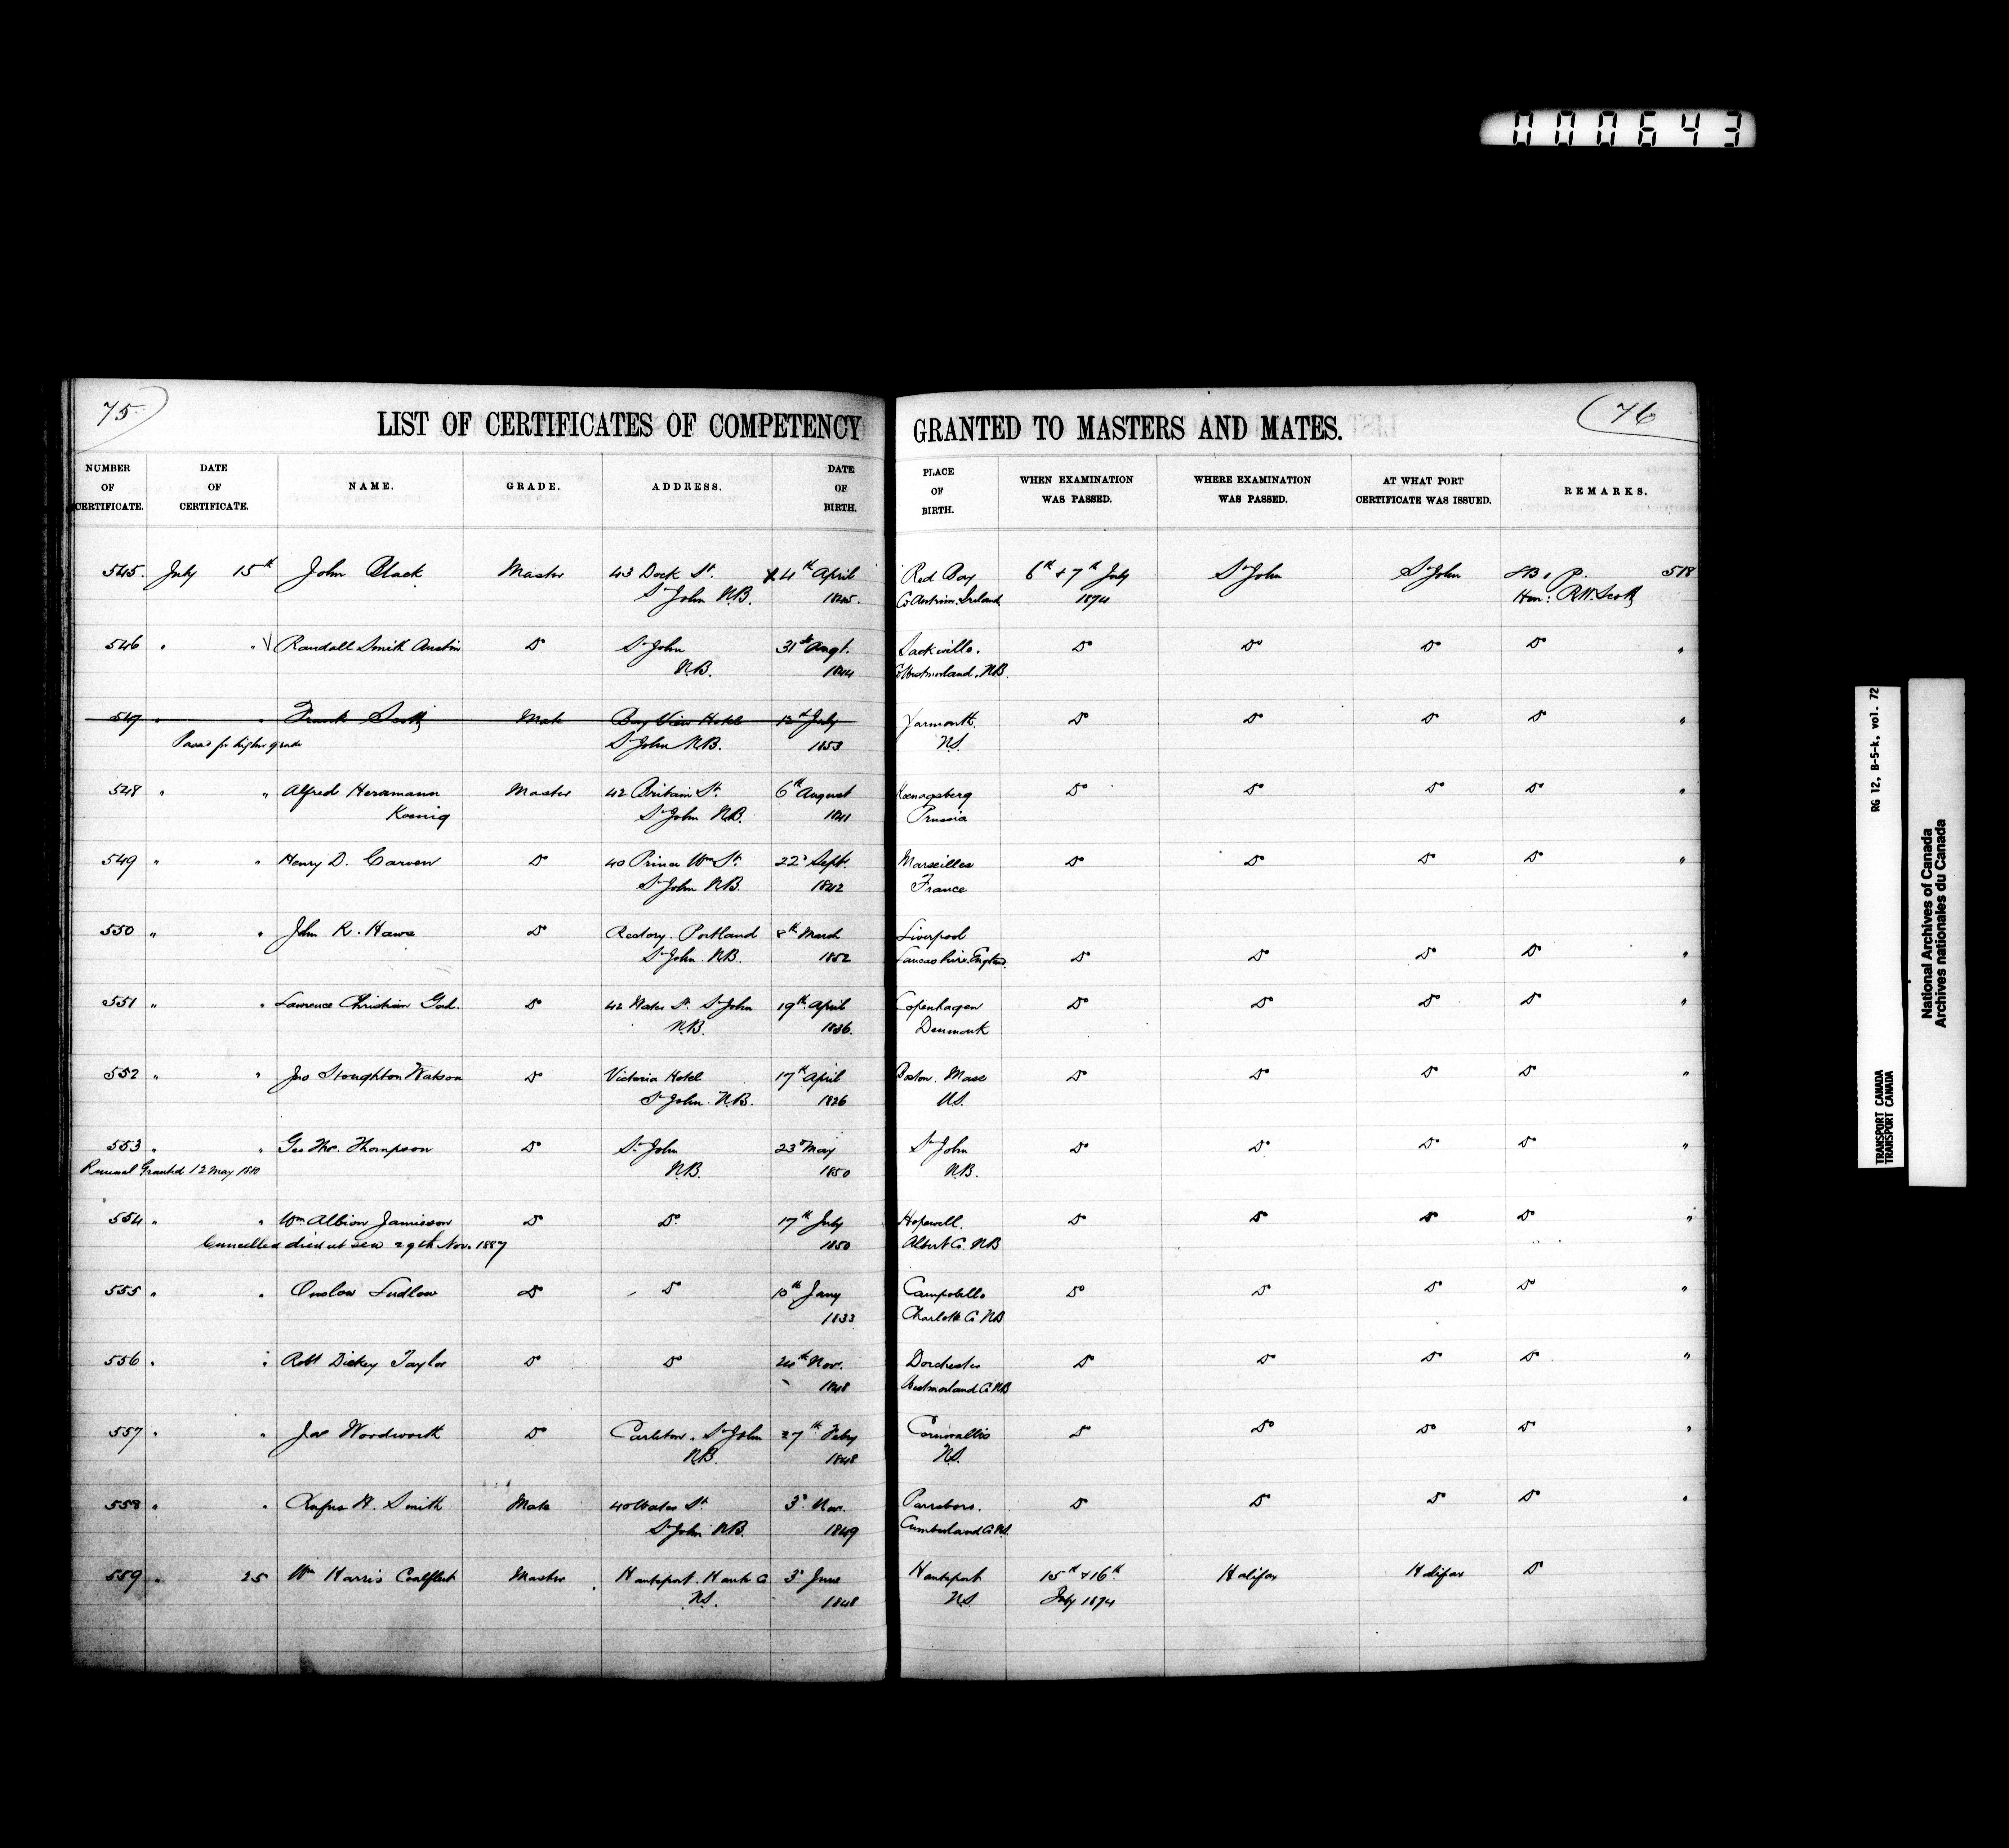 000643
75
LIST OF CERTIFICATES OF COMPETENCY GRANTED TO MASTERS AND MATES.
76
NUMBER OF CERTIFICATE. DATE OF CERTIFICATE. NAME. GRADE. ADDRESS. DATE OF BIRTH. PLACE OF BIRTH. WHEN EXAMINATION WAS PASSED. WHERE EXAMINATION WAS PASSED. AT WHAT PORT CERTIFICATE WAS ISSUED. REMARKS.
545. July 15th John Black Master 43 Dock St. 4th April Red Bay 6th & 7th July St John St John P. 518
St John N.B. 1845. Co Antrim. Ireland 1874 Hon: R.W. Scott
546 " " Randall Smith Austin Do St John 31st Augt. Sackville. Do Do Do Do "
N.B. 1844 Co Westmorland, N.B.
547 " " Frank Scott Mate Bay View Hotel 12th July Yarmouth. Do Do Do Do "
Pass'd for higher grade St John N.B. 1853 N.S.
548 " " Alfred Hermann Master 42 Britain St. 6th August Koenagsberg Do Do Do Do "
Koenig St John N.B. 1841 Prussia
549 " " Henry D. Carven Do 40 Prince Wm St. 22d Sept. Marseilles Do Do Do Do "
St John N.B. 1842 France
550 " " John R. Hawe Do Rectory. Portland 8th March Liverpool
St John. N.B. 1852 Lancashire. England. Do Do Do Do "
551 " " Lawrence Christian Gad. Do 42 Water St. St John 19th April Copenhagen Do Do Do Do "
N.B. 1836. Denmark
552 " " Jno Stoughton Watson Do Victoria Hotel 17th April Boston. Mass Do Do Do Do "
St John. N.B. 1826 U.S.
553 " " Geo Tho. Thompson Do St. John 23d May St John Do Do Do Do "
Renewal Granted 12 May 1810 N.B. 1850 N.B.
554 " " Wm Albion Jamieson Do Do 17th July Hopewell. Do Do Do Do "
Cancelled died at sea 29th Nov. 1887 1850 Albert Co. N.B
555 " " Onslow Ludlow Do Do 10th Jany Campobello Do Do Do Do "
1833 Charlotte Co N.B
556 " " Robt Dickey Taylor Do Do 24th Nov. Dorchester Do Do Do Do "
1848 Westmorland Co N.B
557 " " Woodworth Do Carleton. St John 27th Feby Cornwallis Do Do Do Do "
N.B. 1848 N.S.
558 " " Rufus H. Smith Mate 40 Water St. 3d Nov. Parrsboro. Do Do Do Do "
St John N.B. 1849 Cumberland Co N.S.
559 " 25 Wm Harris Coalfleet Master Hantsport. Hants Co 3d June Hantsport 15th & 16th Halifax Halifax Do
N.S. 1848 N.S. July 1874
RG 12, B-5-k, vol. 72
TRANSPORT CANADA
TRANSPORT CANADA
National Archives of Canada
Archives nationales du Canada